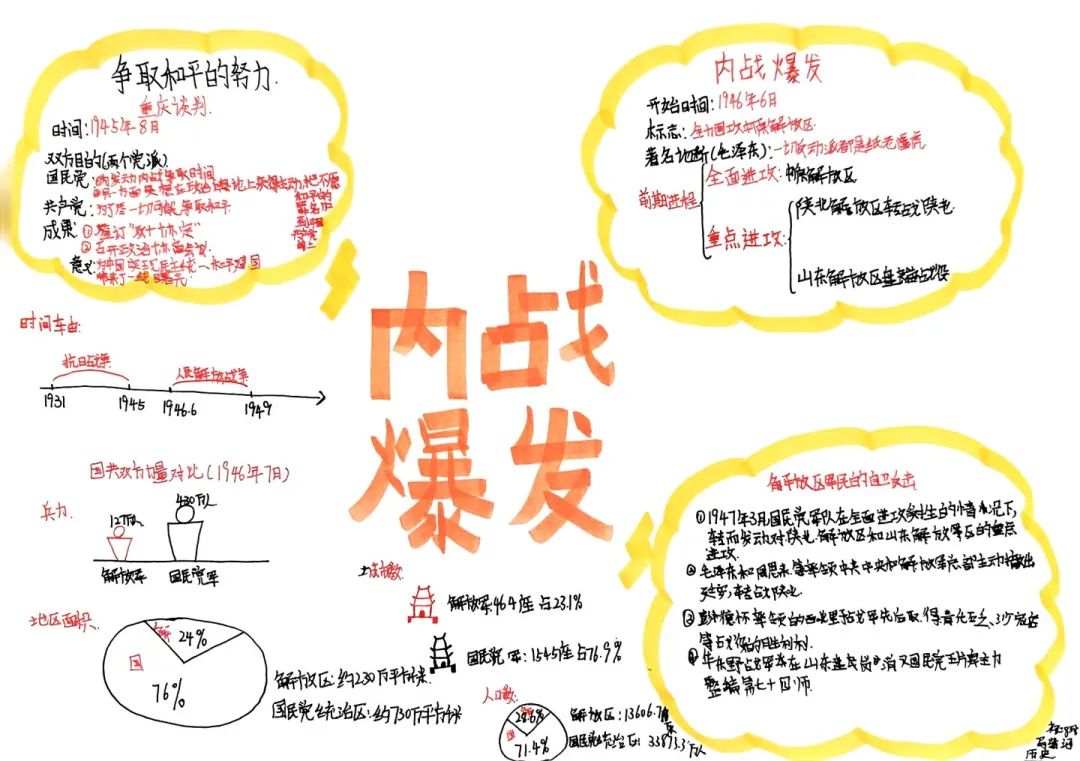 争取和平的努力.
重庆谈判.
时间:1945年8月
双方目的(两个党派)
国民党:为发动内战争取时间
另一方面
共产党:为了尽一切可能争取和平
和平的
罪名
成果:①签订“双十协定”
②召开政治协商会议
意义:为中国实现民主统一、和平建国
带来了一线曙光.
内战爆发
开始时间:1946年6月
标志:全力围攻中原解放区
著名论断(毛泽东):一切反动派都是纸老虎
前期进程
全面进攻:中原解放区
重点进攻:
陕北解放区转战陕北
山东解放区孟良崮战役
内战
爆发
时间车由:
抗日战争
人民解放战争
1931
1945
1946.6
1949
国共双方力量对比(1946年7月)
兵力
430万人
解放军
国民党军
地区面积
解
24%
国
76%
解放区:约230万平方千米
国民党统治区:约730万平方千米
城市数
解放军464座 占23.1%
国民党军:1545座 占76.9%
人口数:
28.6%
国
71.4%
解放区:13606.7万
国民党统治区:33893.3万人
解放区军民的自卫攻击
①1947年3月国民党军队在全面进攻
的情况下,
转而发动对陕北解放区和山东解放区的重点
进攻.
②毛泽东和周恩来等率领中共中央和解放军总部主动撤出
延安,转战陕北
③彭德怀率领的西北野战军先后取得青化砭、
等战役的胜利
④华东野战军在山东孟良崮消灭国民党王牌军主力
整编第七十四师.
历史